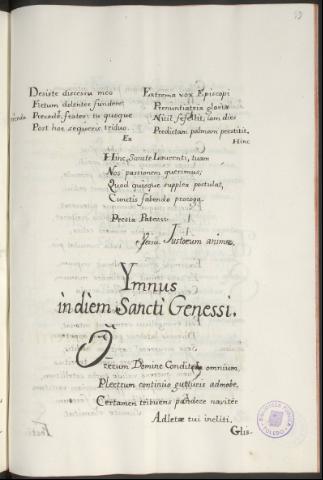 Desiste discessu meo
Fletum dolenter fundere,
Precedo, frater; tu quoque
Post hoc sequeris triduo.
Ex
Extrema vox Episcopi
Prenuntiatrix gloriæ
Nihil fefellit, iam dies
Predictam palmam prestitit,
Hinc
Hinc, Sancte Laurenti, tuam
Nos passionem querimus;
Quod quisque supplex postulat,
Cunctis fabendo proroga.
Presta Pater.
Justorum animæ.
Ymnus
in diem Sancti Genessi.
Rerum Domine Conditor omnium,
Plectrum continuo gutturis admobe,
Certamen tribuens pandere naviter
Adletæ tui incliti,
Glis-
BIBLIOTECA PUBLICA
TOLEDO